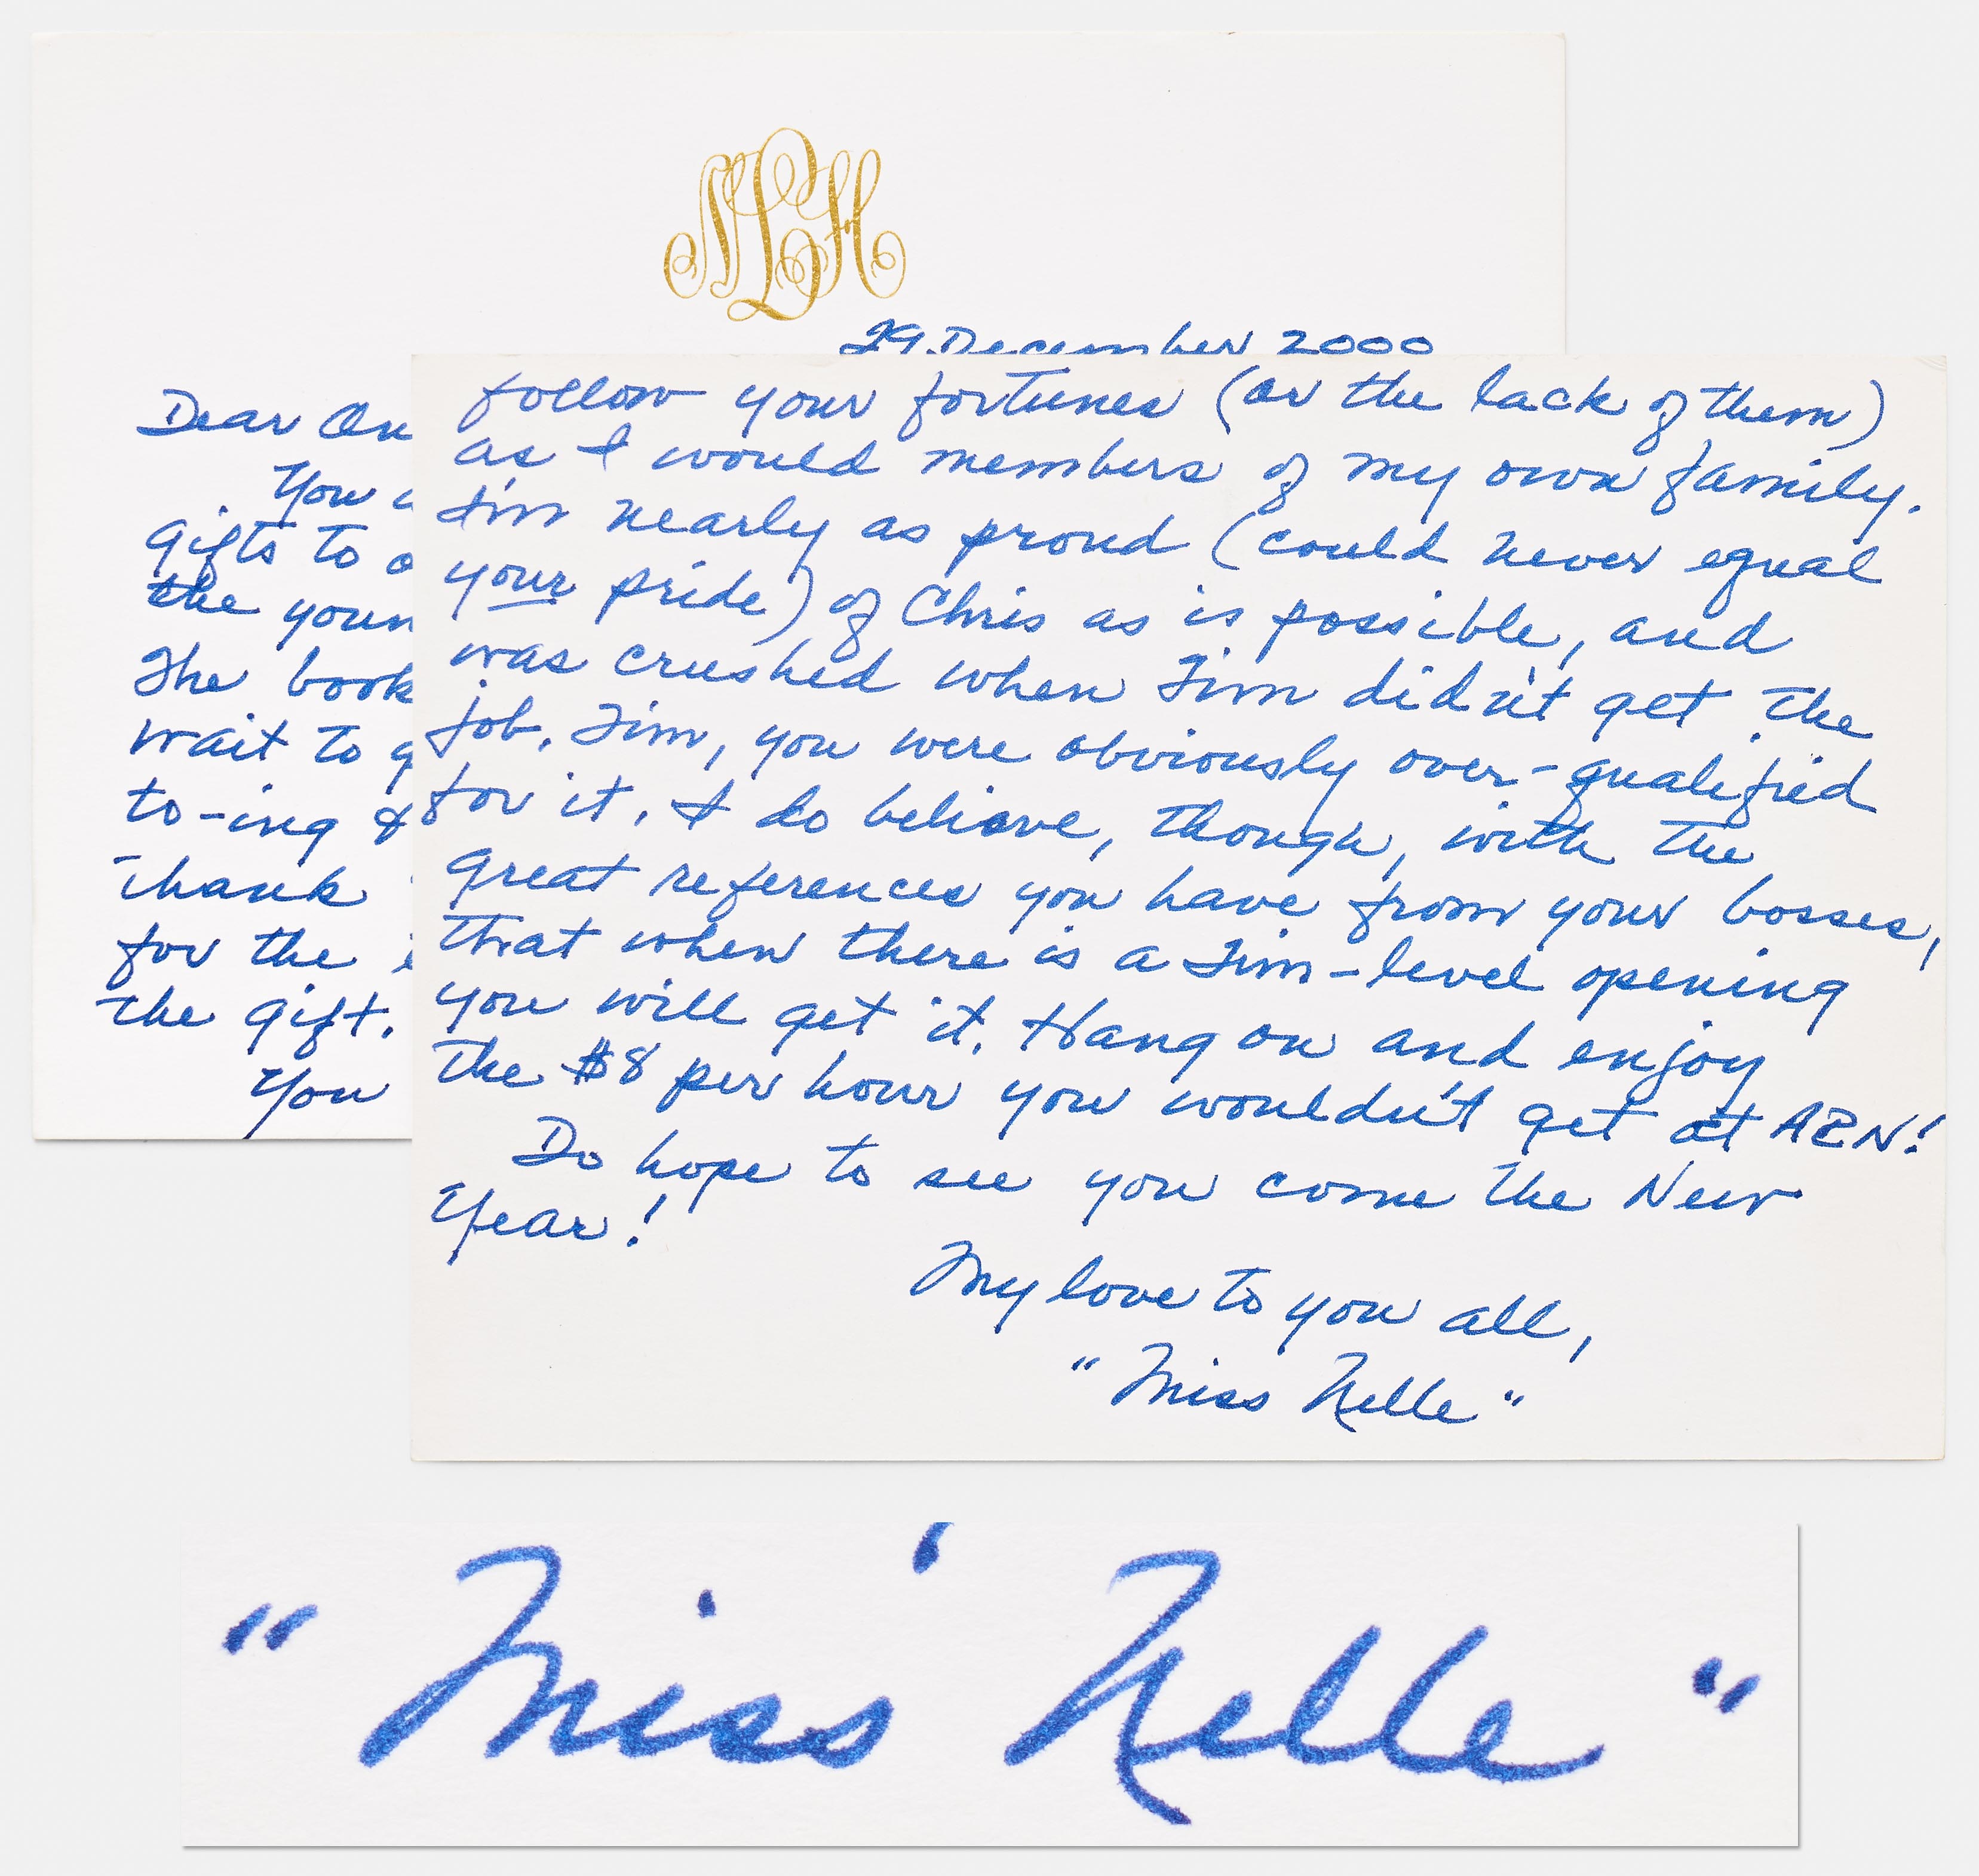 NLH
29 December 2000
Dear
You
gifts to
the
The book
wait to
to-ing &
Thank
for the
the gift.
You
follow your fortunes (or the lack of them)
as I would members of my own family.
I'm nearly as proud (could never equal
your pride) of Chris as is possible, and
was crushed when Tim didn't get the
job. Tim, you were obviously over-qualified
for it. I do believe, though, with the
great references you have from your bosses,
that when there is a Tim-level opening
you will get it. Hang on and enjoy
the $8 per hour you wouldn't get at
Do hope to see you come the New
Year!
My love to you all,
"Miss Nelle"
"Miss Nelle"